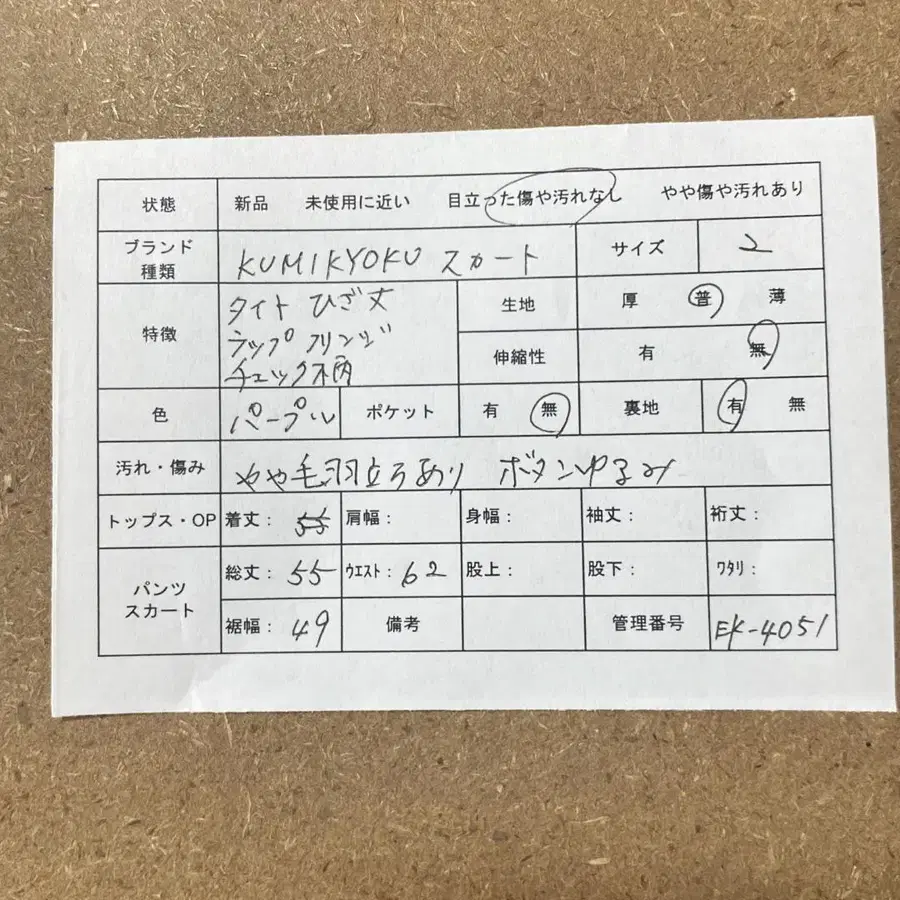 状態 新品 未使用に近い 目立った傷や汚れなし やや傷や汚れあり
ブランド
種類
KUMIKYOKU スカート
サイズ 2
特徴
タイト ひざ丈
ラップ フリンジ
チェック柄
生地 厚 普 薄
伸縮性 有 無
色 パープル ポケット 有 無 裏地 有 無
汚れ・傷み やや毛羽立ちあり ボタンゆるみ
トップス・OP 着丈: 55 肩幅: 身幅: 袖丈: 裄丈:
パンツ
スカート
総丈: 55 ウエスト: 62 股上: 股下: ワタリ:
裾幅: 49 備考 管理番号 EK-4051